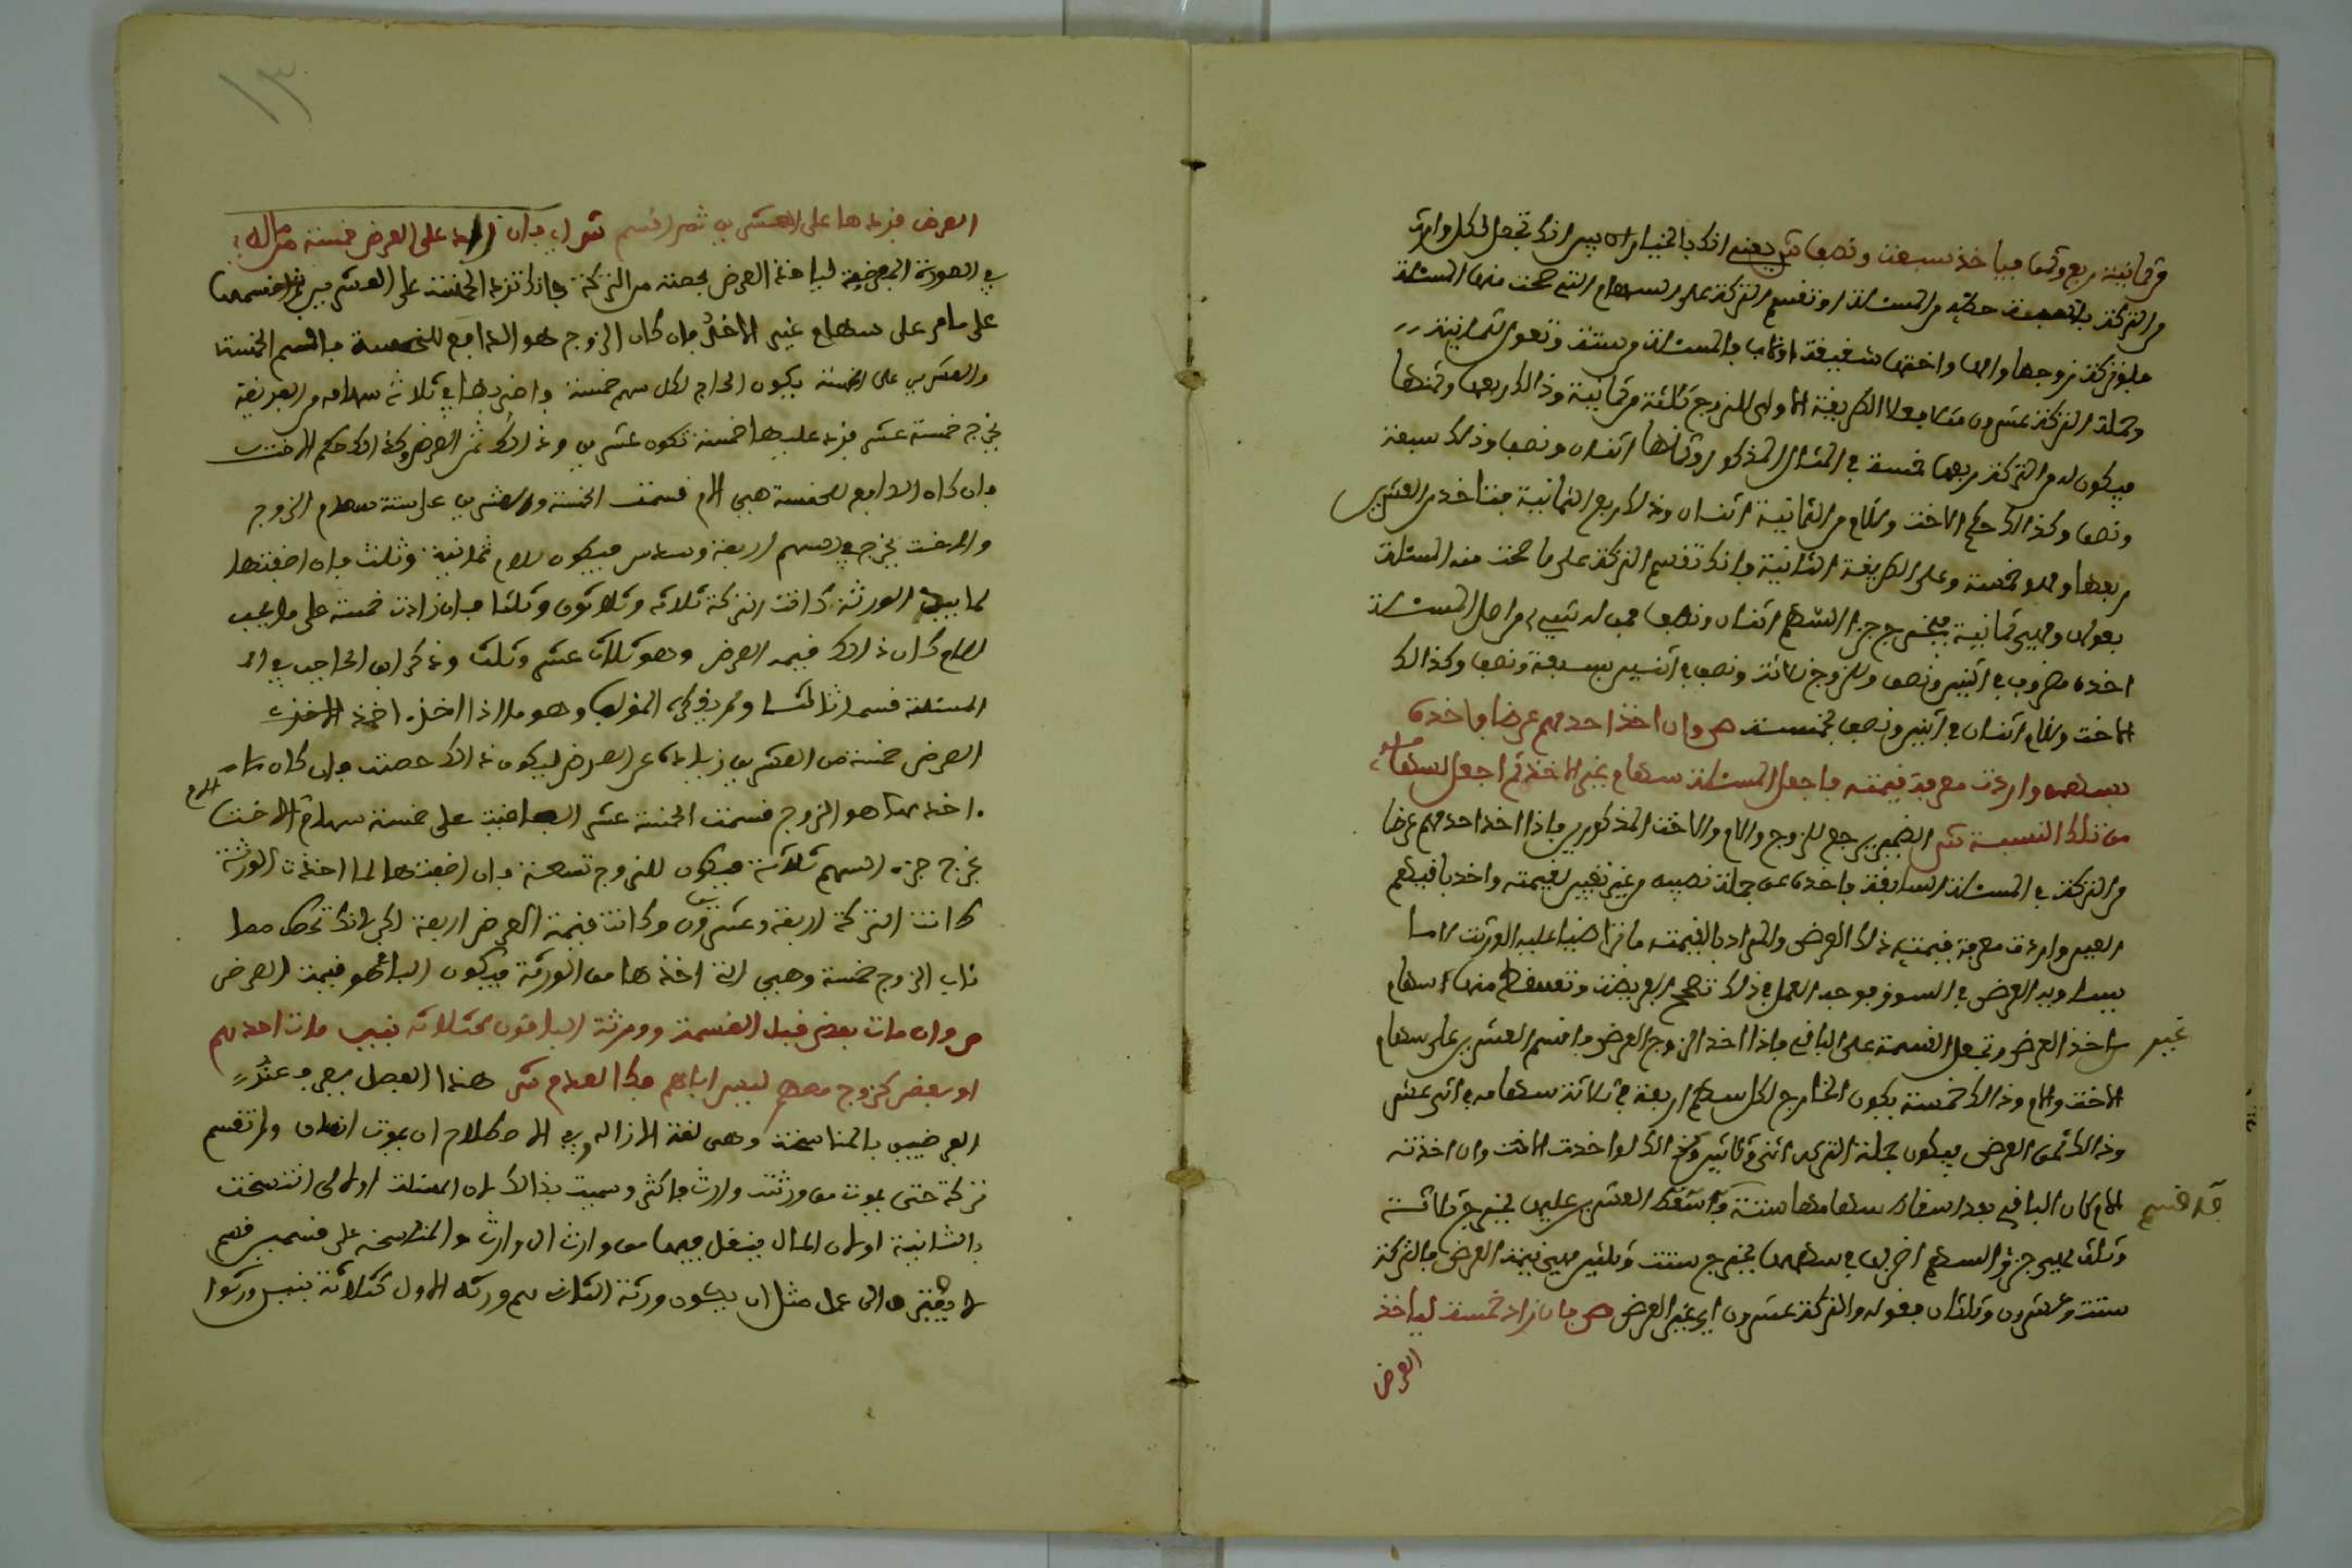 من ثمانية ربع وثمن فياخذ سبعة ونصف ش يعني انك بالخيار ان بين انك تجعل لكل وارث
من التركة بنسبة حظه من المسئلة او تقسم التركة على السهام التي صحت منها المسئلة
فلو تركت زوجها وامها واختها شقيقة او لاب فالمسئلة من ستة وتعول لثمانية
وجملة التركة عشرون مثلا فعلا الطريقة الاولى للزوج ثلثة من ثمانية وذالك ربعها وثمنها
فيكون له من التركة ربعها خمسة في المثال المذكور وثمنها اثنان ونصف وذلك سبعة
ونصف وكذالك حكم الاخت وللام من الثمانية اثنان وذلك ربع الثمانية فتاخذ من العشرين
ربعها وهو خمسة وعلى الطريقة الثانية فانك تقسم التركة على ما صحت منه المسئلة
بعولها وهي ثمانية فيخرج جزء السهم اثنان ونصف فمن له شيء من اصل المسئلة
اخذه مضروب في اثنين ونصف وللزوج ثلاثة ونصف في اثنين بسبعة ونصف وكذالك
الاخت وللام اثنان في اثنين ونصف بخمسة ص وان اخذ احدهم عرضا فاخذه
بسهمه واردت معرفة قيمته فاجعل المسئلة سهام غير الاخذ ثم اجعل لسهامه
من تلك النسبة ش الضمير يرجع للزوج والام والاخت المذكورين فاذا اخذ احدهم عرضا
من التركة في المسئلة السابقة فاخذه عن جملة نصيبه من غير تعيين لقيمته واخذ باقيهم
العين واردت معرفة قيمته ذلك العرض والمراد بالقيمة ما تراضيا عليه الورثة لا ما
يساويه العرض في السوق فوجه العمل في ذلك تصحح الفريضة وتسقط منها سهام
اخذ العرض وتجعل القسمة على الباقي فاذا اخذ الزوج العرض فاقسم العشرين على سهام
غير
الاخت والام وذالك خمسة يكون الخارج لكل سهم اربعة في ثلاثة سهامه في اثنى عشر
وذالك ثمن العرض فيكون جملة التركة اثنين وثلاثين وكذالك لو اخذت الاخت وان اخذته
الام كان الباقي بعد اسقاط سهامها ستة فاقسم العشرين عليها يخرج ثلاثة
قدا قسم
وثلث هي جزء السهم اضربها في سهمها يخرج ستة وثلثين هي قيمة العرض فالتركة
ستة وعشرون وثلثان فقوله والتركة عشرون اي غير العرض ص فان زاد خمسة لياخذ
العرض
١٣
العرض فزدها على العشرين ثم اقسم ش اي فان زاد على العرض خمسة مثاله
في الصورة المفروضة لياخذ العرض بحصته من التركة فانك تزيد الخمسة على العشرين ثم اقسمها
على ما مر على سهام غير الاخذ فان كان الزوج هو الدافع للخمسة فاقسم الخمسة
والعشرين على الخمسة يكون الخارج لكل سهم خمسة واضربها في ثلاثة سهامه من الفريضة
يخرج خمسة عشر فزد عليها خمسة تكون عشرين وذالك ثمن العرض وكذالك حكم الاخت
فان كان الدافع للخمسة هي الام قسمت الخمسة والعشرين على ستة سهام الزوج
والاخت يخرج للسهم اربعة وسدس فيكون للام ثمانية وثلث فان اضفتها
لما بيد الورثة كانت التركة ثلاثة وثلاثون وثلثا فان زادت خمسة على ما يجب
لها كان ذالك قيمة العرض وهو ثلاث عشر وثلث وذكر ابن الحاجب في
المسئلة قسما ثالثا وهو ما اذا اخذ اخذ
العرض خمسة من العشرين زيادة على العرض ليكون ذالك حصته فان كان
اخذها هو الزوج قسمت الخمسة عشر الباقية على خمسة سهام الاخت
والام
يخرج جزء السهم ثلاثة فيكون للزوج تسعة فان اضفتها لما اخذت الورثة
كانت التركة اربعة وعشرون وكانت قيمة العرض اربعة لانك تحط مما
ناب الزوج خمسة وهي التي اخذها من الورثة فيكون الباقي هو قيمة العرض
ص وان مات بعض قبل القسمة وورثه الباقون كثلاثة بنين مات احدهم
او بعض كزوج معهم ليس اباهم فكا العدم ش هذا الفصل يعرف عند
الفرضيين بالمناسخة وهي لغة الازالة وفي الاصطلاح ان يموت انسان ولم تقسم
تركة حتى يموت من ورثته وارث فاكثر وسميت بذالك لان المسئلة الاولى انتسخت
بالثانية او لان المال ينتقل فيها من وارث الى وارث والمناسخة على قسمين قسم
لا يفتقر الى عمل مثل ان يكون ورثة الثاني هم ورثة الاول كثلاثة بنين ورثوا